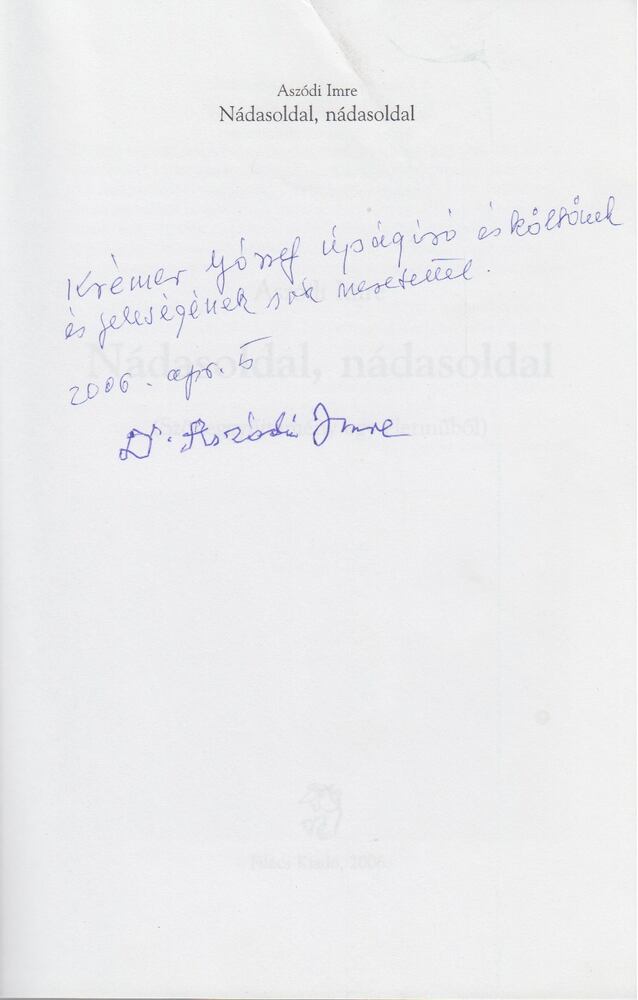 Aszódi Imre
Nádasoldal, nádasoldal
Krémer József újságíró és költőnek
és feleségének sok szeretettel.
2006. apr. 5
Dr. Aszódi Imre
Nádasoldal, nádasoldal